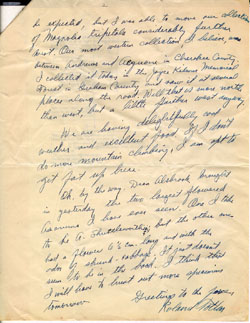 be expected, but I was able to move our
of Magnolia tripetala considerably farther
west. Our most western collection I believe was
between Andrews and Aquone in Cherokee County.
I collected it today in the Joyce Kilmer Memorial
Forest in Graham County and saw it at several
places along the road. Will that as more north
than west, but a little farther west anyway.
We are having delightfully cool
weather and excellent food. If I don't
do more mountain climbing, I am apt to
get fat up here.
Oh by the way: Dean Alsbrook brought
in yesterday the two largest flowered
Asarums I have ever seen. One I take
to be A. Shuttleworthii, but the other one
had a flower long and with the
odor of skunk cabbage. It just doesn't
seem to be in the book. I think that
I will have to hunt out more specimens
tomorrow.
Greetings to the